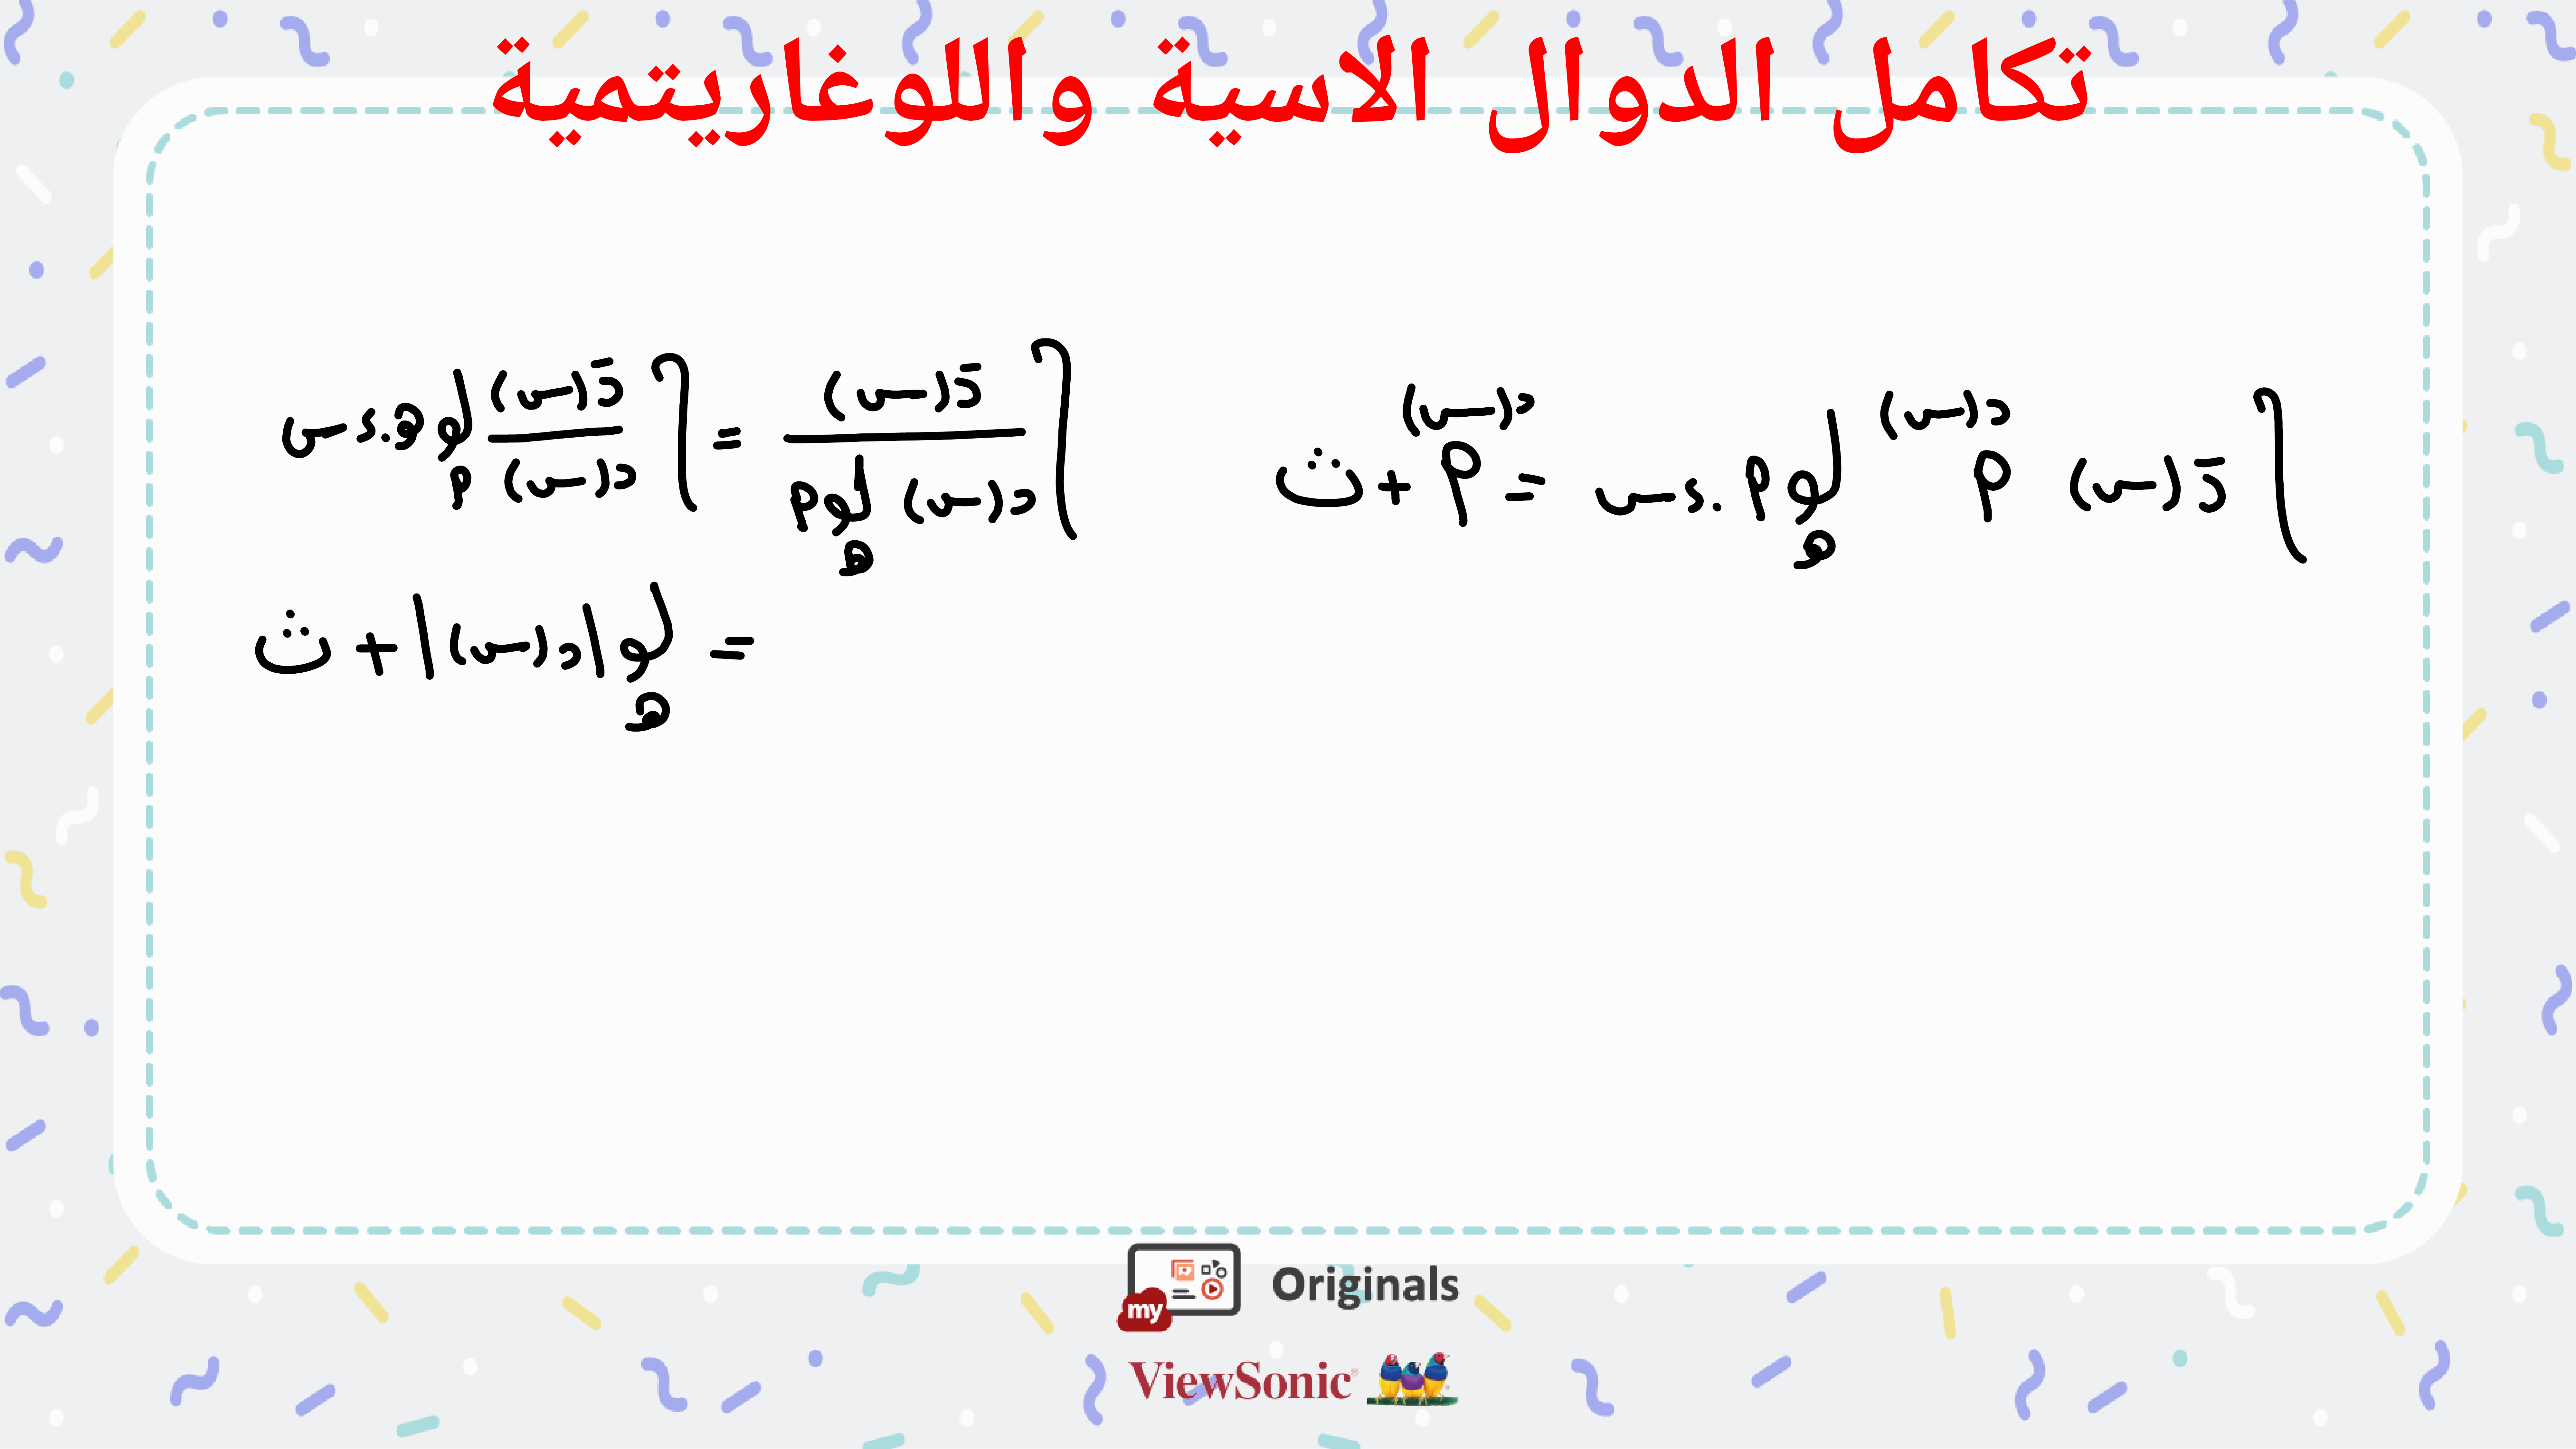 تكامل الدوال الاسية واللوغاريتمية
∫ دَ(س) م^د(س) لو_هـ م . ءس = م^د(س) + ث
∫ دَ(س) / د(س) لو_هـ م = ∫ دَ(س) / د(س) لو_م هـ . ءس
= لو_هـ |د(س)| + ث
my Originals
ViewSonic